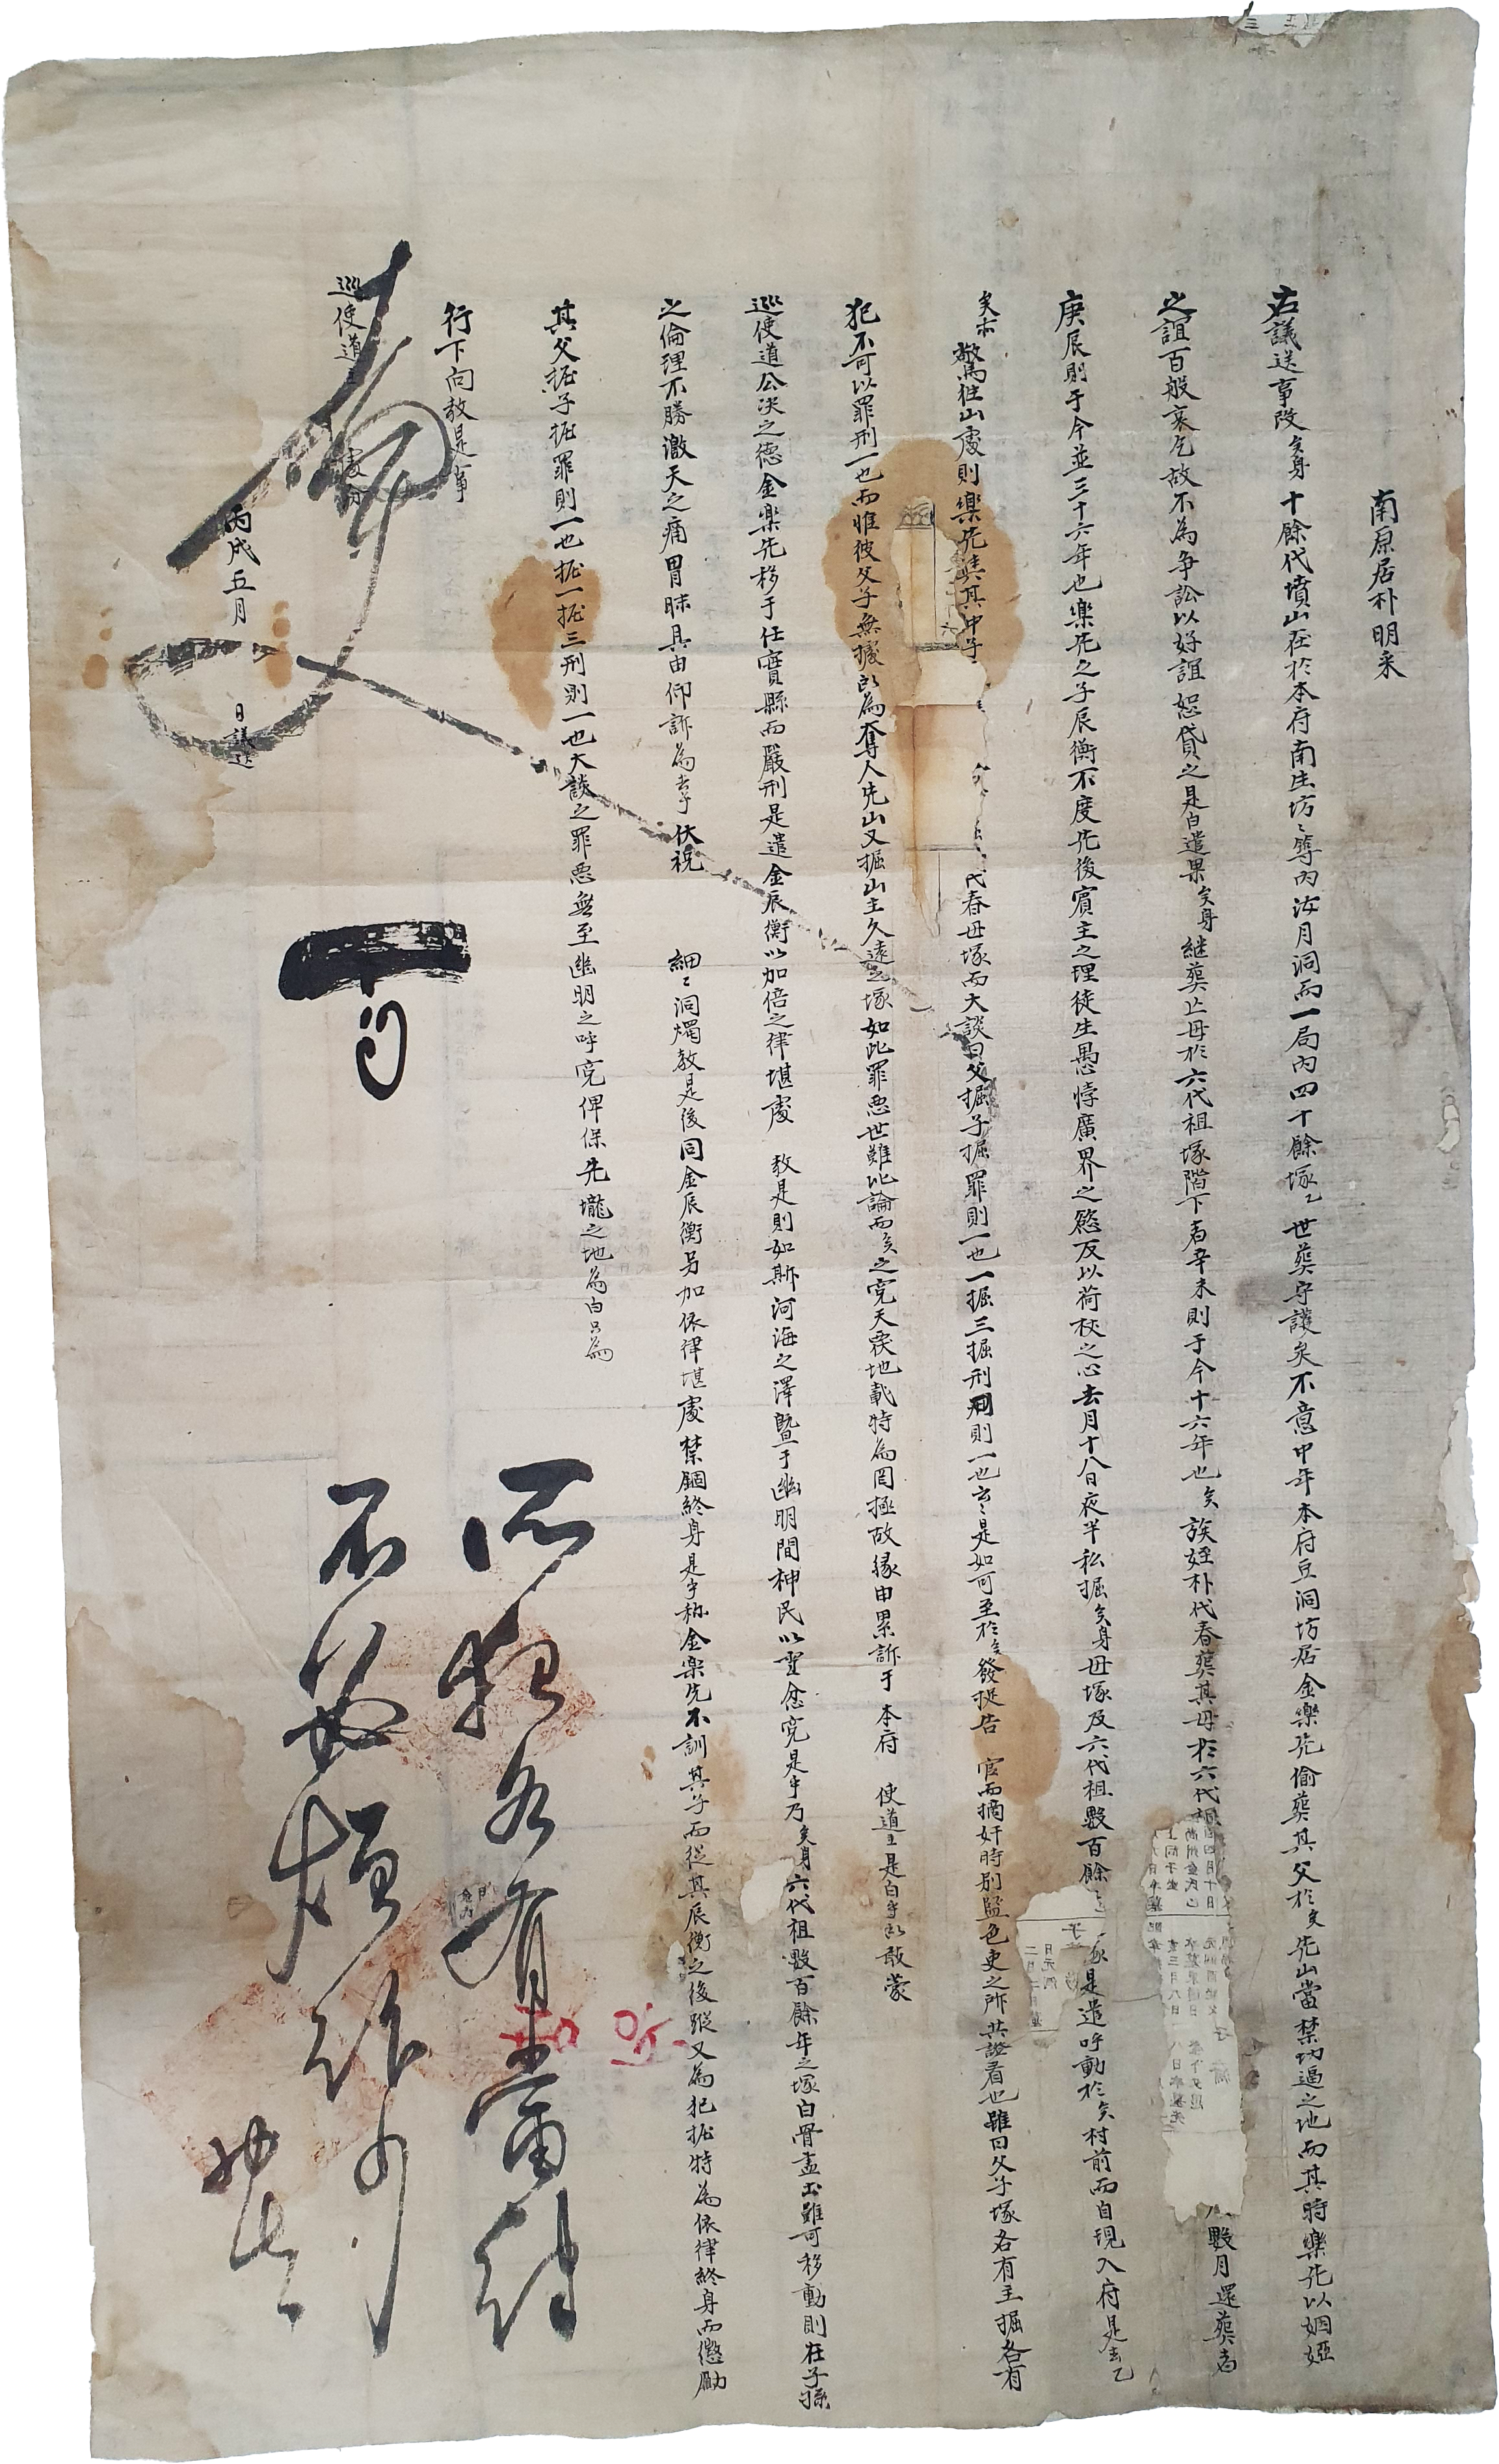 南原居朴明采
右議送事段矣身十餘代墳山在於本府南生坊〻築內海月洞而一局內四十餘塚乙世葬守護矣不意中年本府豆洞坊居金樂先偷葬其父於矣先山當禁切逼之地而其時樂先以姻婭
之誼百般哀乞故不為爭訟以好誼恕貸之是白遣果矣身継葬亡母於六代祖塚階下者辛未則于今十六年也矣族姪朴代春葬其母於六代祖 數月還葬者
庚辰則于今並三十六年也樂先之子辰衡不度先後賓主之理徒生愚悖廣界之慾反以荷杖之心去月十八日夜半私掘矣身母塚及六代祖數百餘 塚是遣呼動於矣村前而自現入府是去乙
矣亦驚往山處則樂先與其中子 代春母塚而大談曰父掘子掘罪則一也一掘三掘刑則一也云〻是如可至於矣發捉告官而摘奸時別監色吏之所共證看也雖曰父子塚各有主掘各有
犯不可以罪刑一也而惟彼父子無據敢為奪人先山又掘山主久遠之塚如此罪惡世難比論而矣之寃天覆地載特為罔極故緣由累訴于本府使道主是白乎所敢蒙
巡使道公決之德金樂先移于任實縣而嚴刑是遣金辰衡以加倍之律堪處教是則如斯河海之澤曁于幽明間神民以雪忿寃是乎乃矣身六代祖數百餘年之塚白骨盡出雖可移動則在子孫
之倫理不勝激天之痛冒昧具由仰訴為去乎伏祝細〻洞燭教是後同金辰衡另加依律堪處禁錮終身是乎旀金樂先不訓其子而從其辰衡之後蹤又為犯掘特為依律終身而懲勵
其父掘子掘罪則一也掘一掘三刑則一也大談之罪惡無至幽明之呼寃俾保先壠之地為白只為
行下向教是事
巡使道主 處分
丙戌五月 日議送
所犯各有當律
不必煩訴向
事